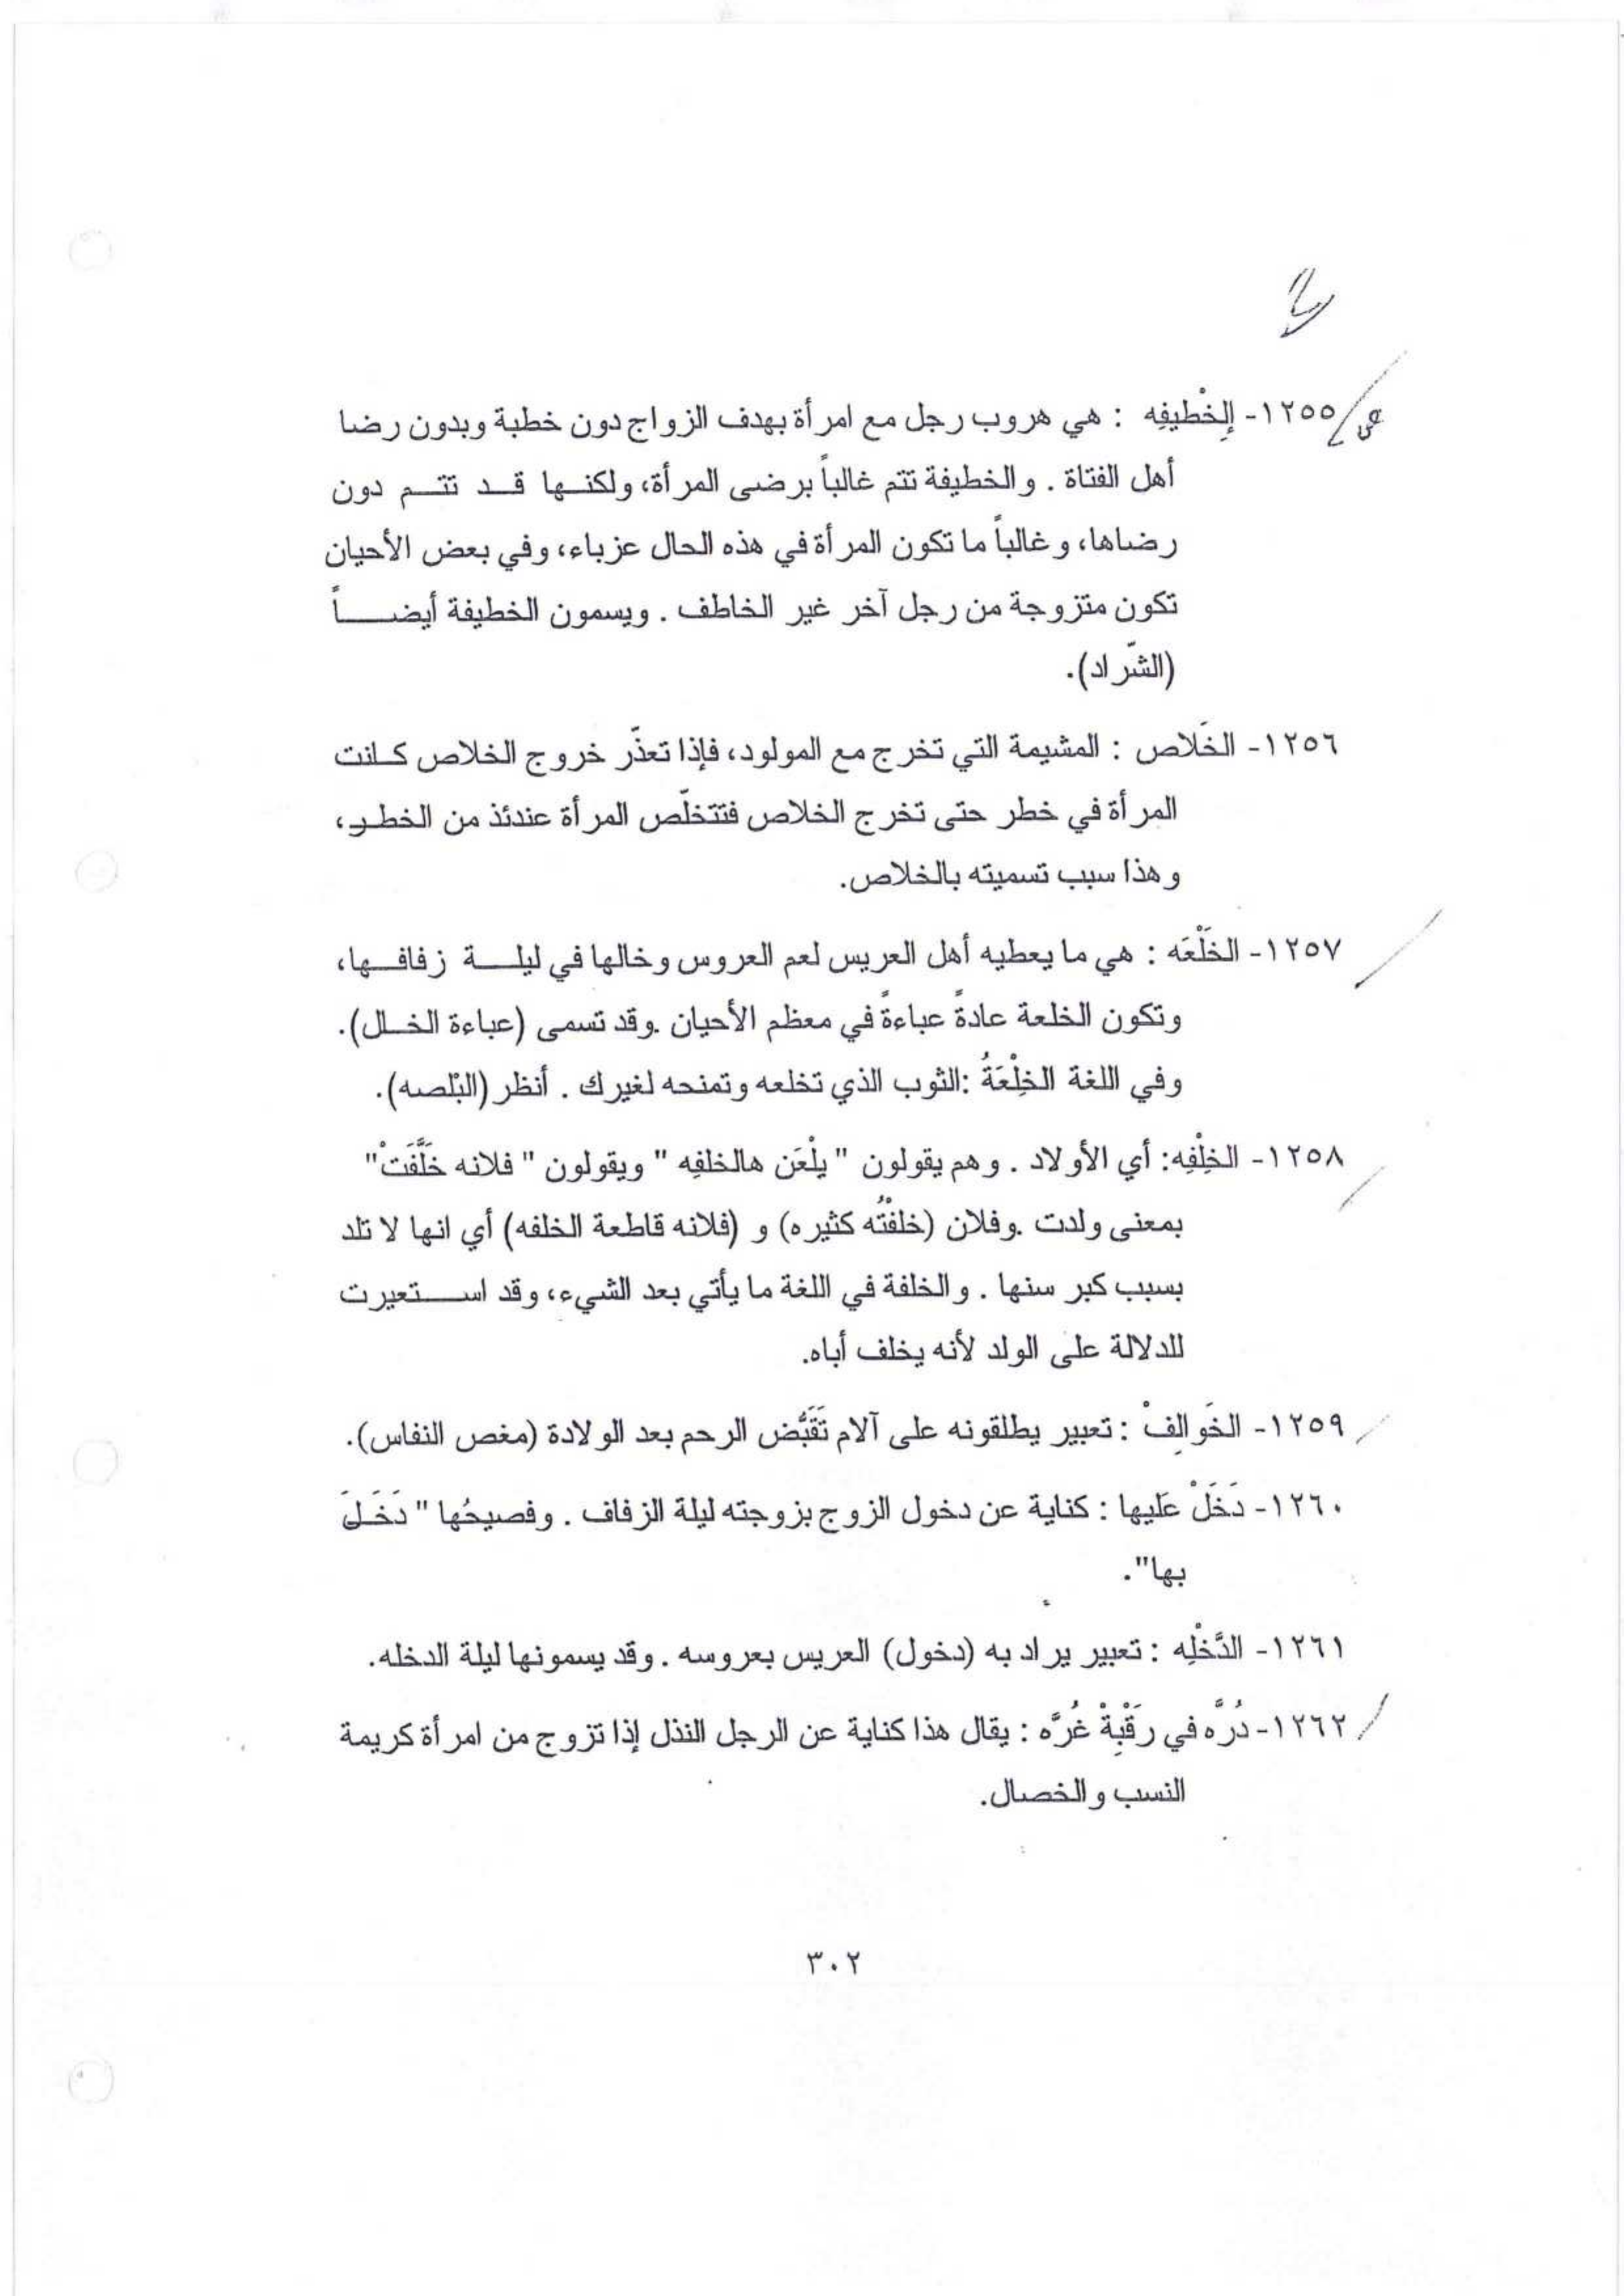 ١٢٥٥- إلِخْطيفِه : هي هروب رجل مع امرأة بهدف الزواج دون خطبة وبدون رضا
أهل الفتاة . والخطيفة تتم غالباً برضى المرأة، ولكنها قد تتم دون
رضاها، وغالباً ما تكون المرأة في هذه الحال عزباء، وفي بعض الأحيان
تكون متزوجة من رجل آخر غير الخاطف . ويسمون الخطيفة أيضاً
(الشّراد).
١٢٥٦- الخَلاص : المشيمة التي تخرج مع المولود، فإذا تعذّر خروج الخلاص كانت
المرأة في خطر حتى تخرج الخلاص فتتخلّص المرأة عندئذ من الخطر،
وهذا سبب تسميته بالخلاص.
١٢٥٧- الخَلْعَه : هي ما يعطيه أهل العريس لعم العروس وخالها في ليلة زفافها،
وتكون الخلعة عادةً عباءةً في معظم الأحيان .وقد تسمى (عباءة الخال).
وفي اللغة الخِلْعَةُ :الثوب الذي تخلعه وتمنحه لغيرك . أنظر (البْلصه).
١٢٥٨- الخِلْفِه: أي الأولاد . وهم يقولون " يِلْعَن هالخلفِه " ويقولون " فلانه خَلَّفَتْ"
بمعنى ولدت .وفلان (خلفْتُه كثيره) و (فلانه قاطعة الخلفه) أي انها لا تلد
بسبب كبر سنها . والخلفة في اللغة ما يأتي بعد الشيء، وقد استعيرت
للدلالة على الولد لأنه يخلف أباه.
١٢٥٩- الخَوالِفْ : تعبير يطلقونه على آلام تَقَبُّض الرحم بعد الولادة (مغص النفاس).
١٢٦٠- دَخَلْ عَليها : كناية عن دخول الزوج بزوجته ليلة الزفاف . وفصيحُها " دَخَلَ
بها".
١٢٦١- الدَّخْلِه : تعبير يراد به (دخول) العريس بعروسه . وقد يسمونها ليلة الدخله.
١٢٦٢- دُرَّه في رَقْبِةْ غُرَّه : يقال هذا كناية عن الرجل النذل إذا تزوج من امرأة كريمة
النسب والخصال.
٣٠٢